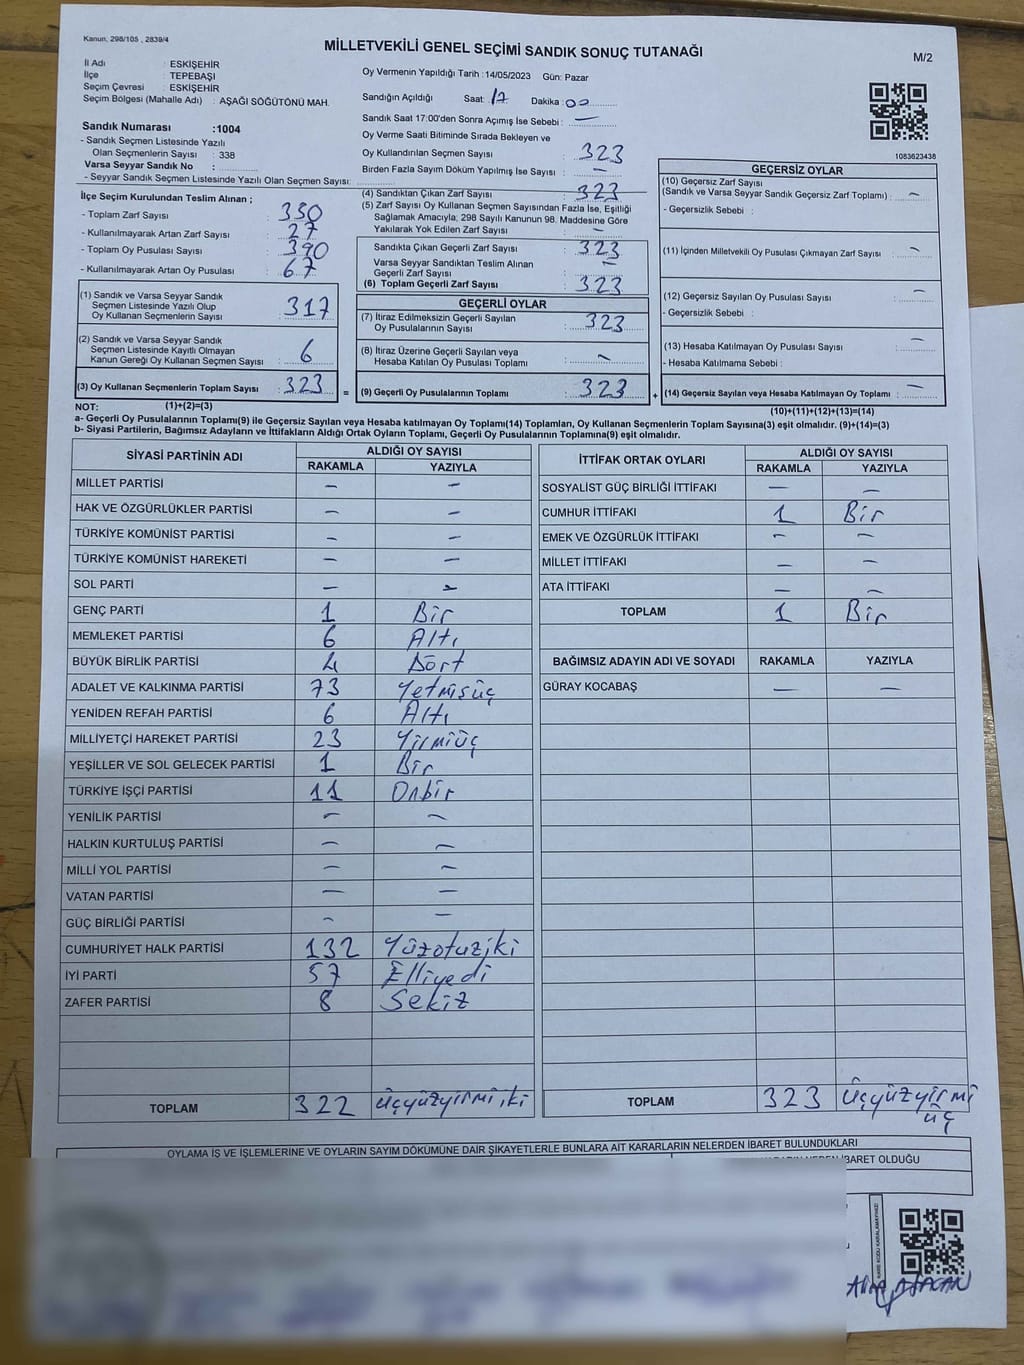 Kanun, 298/105 , 2839/4
MİLLETVEKİLİ GENEL SEÇİMİ SANDIK SONUÇ TUTANAĞI
M/2
İl Adı : ESKİŞEHİR
İlçe : TEPEBAŞI
Seçim Çevresi : ESKİŞEHİR
Seçim Bölgesi (Mahalle Adı) : AŞAĞI SÖĞÜTÖNÜ MAH.
Sandık Numarası :1004
- Sandık Seçmen Listesinde Yazılı
Olan Seçmenlerin Sayısı : 338
Varsa Seyyar Sandık No :
- Seyyar Sandık Seçmen Listesinde Yazılı Olan Seçmen Sayısı:
İlçe Seçim Kurulundan Teslim Alınan ;
- Toplam Zarf Sayısı : 350
- Kullanılmayarak Artan Zarf Sayısı : 27
- Toplam Oy Pusulası Sayısı : 390
- Kullanılmayarak Artan Oy Pusulası : 67
(1) Sandık ve Varsa Seyyar Sandık
Seçmen Listesinde Yazılı Olup
Oy Kullanan Seçmenlerin Sayısı : 317
(2) Sandık ve Varsa Seyyar Sandık
Seçmen Listesinde Kayıtlı Olmayan
Kanun Gereği Oy Kullanan Seçmen Sayısı : 6
(3) Oy Kullanan Seçmenlerin Toplam Sayısı : 323 =
(1)+(2)=(3)
Oy Vermenin Yapıldığı Tarih :14/05/2023 Gün: Pazar
Sandığın Açıldığı Saat: 17 Dakika : 00
Sandık Saat 17:00'den Sonra Açımış İse Sebebi : —
Oy Verme Saati Bitiminde Sırada Bekleyen ve
Oy Kullandırılan Seçmen Sayısı : 323
Birden Fazla Sayım Döküm Yapılmış İse Sayısı : —
(4) Sandıktan Çıkan Zarf Sayısı : 323
(5) Zarf Sayısı Oy Kullanan Seçmen Sayısından Fazla İse, Eşitliği
Sağlamak Amacıyla; 298 Sayılı Kanunun 98. Maddesine Göre
Yakılarak Yok Edilen Zarf Sayısı : —
Sandıkta Çıkan Geçerli Zarf Sayısı : 323
Varsa Seyyar Sandıktan Teslim Alınan
Geçerli Zarf Sayısı : —
(6) Toplam Geçerli Zarf Sayısı : 323
GEÇERLİ OYLAR
(7) İtiraz Edilmeksizin Geçerli Sayılan
Oy Pusulalarının Sayısı : 323
(8) İtiraz Üzerine Geçerli Sayılan veya
Hesaba Katılan Oy Pusulası Toplamı : —
(9) Geçerli Oy Pusulalarının Toplamı : 323 +
1083623438
GEÇERSİZ OYLAR
(10) Geçersiz Zarf Sayısı
(Sandık ve Varsa Seyyar Sandık Geçersiz Zarf Toplamı) : —
- Geçersizlik Sebebi :
(11) İçinden Milletvekili Oy Pusulası Çıkmayan Zarf Sayısı : —
(12) Geçersiz Sayılan Oy Pusulası Sayısı : —
- Geçersizlik Sebebi :
(13) Hesaba Katılmayan Oy Pusulası Sayısı : —
- Hesaba Katılmama Sebebi :
(14) Geçersiz Sayılan veya Hesaba Katılmayan Oy Toplamı : —
(10)+(11)+(12)+(13)=(14)
NOT:
a- Geçerli Oy Pusulalarının Toplamı(9) ile Geçersiz Sayılan veya Hesaba katılmayan Oy Toplamı(14) Toplamları, Oy Kullanan Seçmenlerin Toplam Sayısına(3) eşit olmalıdır. (9)+(14)=(3)
b- Siyasi Partilerin, Bağımsız Adayların ve İttifakların Aldığı Ortak Oyların Toplamı, Geçerli Oy Pusulalarının Toplamına(9) eşit olmalıdır.
SİYASİ PARTİNİN ADI ALDIĞI OY SAYISI
RAKAMLA YAZIYLA
MİLLET PARTİSİ — —
HAK VE ÖZGÜRLÜKLER PARTİSİ — —
TÜRKİYE KOMÜNİST PARTİSİ — —
TÜRKİYE KOMÜNİST HAREKETİ — —
SOL PARTİ — —
GENÇ PARTİ 1 Bir
MEMLEKET PARTİSİ 6 Altı
BÜYÜK BİRLİK PARTİSİ 4 Dört
ADALET VE KALKINMA PARTİSİ 73 Yetmişüç
YENİDEN REFAH PARTİSİ 6 Altı
MİLLİYETÇİ HAREKET PARTİSİ 23 Yirmiüç
YEŞİLLER VE SOL GELECEK PARTİSİ 1 Bir
TÜRKİYE İŞÇİ PARTİSİ 11 Onbir
YENİLİK PARTİSİ — —
HALKIN KURTULUŞ PARTİSİ — —
MİLLİ YOL PARTİSİ — —
VATAN PARTİSİ — —
GÜÇ BİRLİĞİ PARTİSİ — —
CUMHURİYET HALK PARTİSİ 132 Yüzotuziki
İYİ PARTİ 57 Elliyedi
ZAFER PARTİSİ 8 Sekiz
TOPLAM 322 Üçyüzyirmiiki
İTTİFAK ORTAK OYLARI ALDIĞI OY SAYISI
RAKAMLA YAZIYLA
SOSYALİST GÜÇ BİRLİĞİ İTTİFAKI — —
CUMHUR İTTİFAKI 1 Bir
EMEK VE ÖZGÜRLÜK İTTİFAKI — —
MİLLET İTTİFAKI — —
ATA İTTİFAKI — —
TOPLAM 1 Bir
BAĞIMSIZ ADAYIN ADI VE SOYADI RAKAMLA YAZIYLA
GÜRAY KOCABAŞ — —
TOPLAM 323 Üçyüzyirmi
üç
OYLAMA İŞ VE İŞLEMLERİNE VE OYLARIN SAYIM DÖKÜMÜNE DAİR ŞİKAYETLERLE BUNLARA AİT KARARLARIN NELERDEN İBARET BULUNDUKLARI
İBARET OLDUĞU
KARE KODU KARALAMAYINIZ!